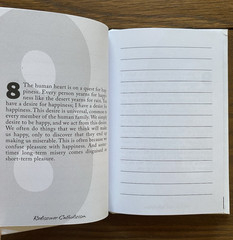 8 The human heart is on a quest for hap-
piness. Every person yearns for hap-
piness like the desert yearns for rain. You
have a desire for happiness; I have a desire for
happiness. This desire is universal, common to
every member of the human family. We simply
desire to be happy, and we act from this desire.
We often do things that we think will make
us happy, only to discover that they end up
making us miserable. This is often because we
confuse pleasure with happiness. And some-
times long-term misery comes disguised as
short-term pleasure.
Rediscover Catholicism